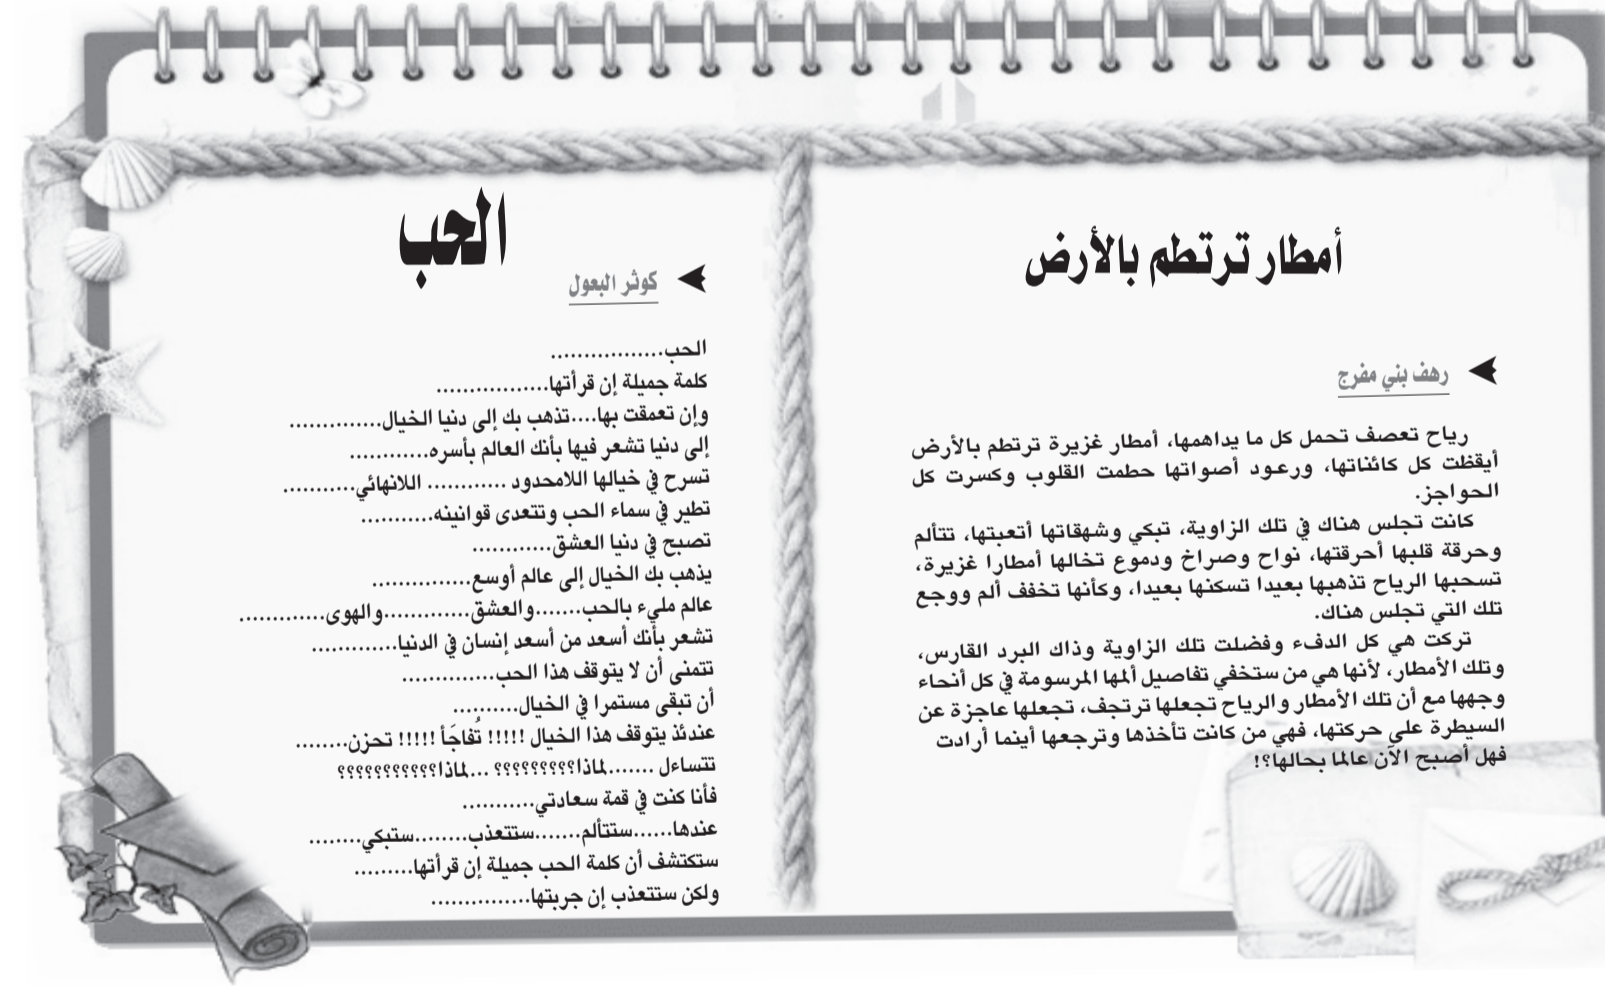 أمطار ترتطم بالأرض
رهف بني مفرج
رياح تعصف تحمل كل ما يداهمها، أمطار غزيرة ترتطم بالأرض
أيقظت كل كائناتها، ورعود أصواتها حطمت القلوب وكسرت كل
الحواجز.
كانت تجلس هناك في تلك الزاوية، تبكي وشهقاتها أتعبتها، تتألم
وحرقة قلبها أحرقتها، نواح وصراخ ودموع تخالها أمطارا غزيرة،
تسحبها الرياح تذهبها بعيدا تسكنها بعيدا، وكأنها تخفف ألم ووجع
تلك التي تجلس هناك.
تركت هي كل الدفء وفضلت تلك الزاوية وذاك البرد القارس،
وتلك الأمطار، لأنها هي من ستخفي تفاصيل ألمها المرسومة في كل أنحاء
وجهها مع أن تلك الأمطار والرياح تجعلها ترتجف، تجعلها عاجزة عن
السيطرة على حركتها، فهي من كانت تأخذها وترجعها أينما أرادت
فهل أصبح الآن عالما بحالها؟!
الحب
كوثر البعول
الحب.................
كلمة جميلة إن قرأتها.................
وإن تعمقت بها....تذهب بك إلى دنيا الخيال..............
إلى دنيا تشعر فيها بأنك العالم بأسره............
تسرح في خيالها اللامحدود ............ اللانهائي...........
تطير في سماء الحب وتتعدى قوانينه...........
تصبح في دنيا العشق............
يذهب بك الخيال إلى عالم أوسع...............
عالم مليء بالحب.......والعشق.............والهوى.............
تشعر بأنك أسعد من أسعد إنسان في الدنيا.............
تتمنى أن لا يتوقف هذا الحب..............
أن تبقى مستمرا في الخيال..........
عندئذ يتوقف هذا الخيال !!!!! تُفاجَأ !!!!! تحزن........
تتساءل .......لماذا؟؟؟؟؟؟؟؟؟ ...لماذا؟؟؟؟؟؟؟؟؟؟؟
فأنا كنت في قمة سعادتي...........
عندها......ستتألم.......ستتعذب........ستبكي........
ستكتشف أن كلمة الحب جميلة إن قرأتها.........
ولكن ستتعذب إن جربتها...............